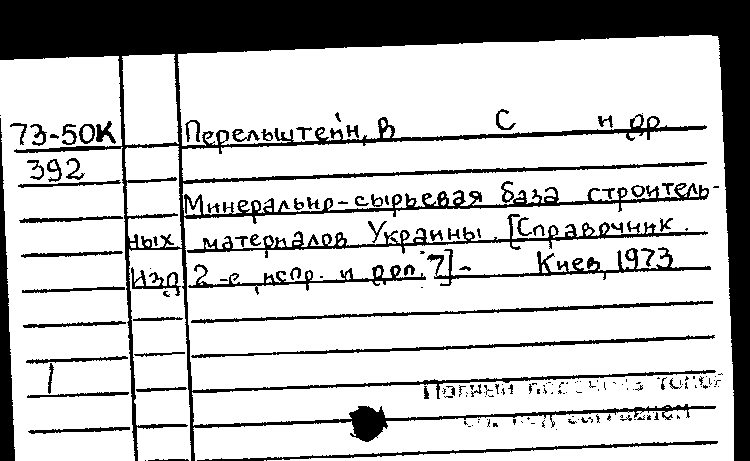 73-50К Перельштейн, В С и др.
392
Минерально-сырьевая база строитель-
ных материалов Украины. [Справочник.
Изд 2-е, испр. и доп.] - Киев, 1973
1
Полный перечень томов
см. под заглавием